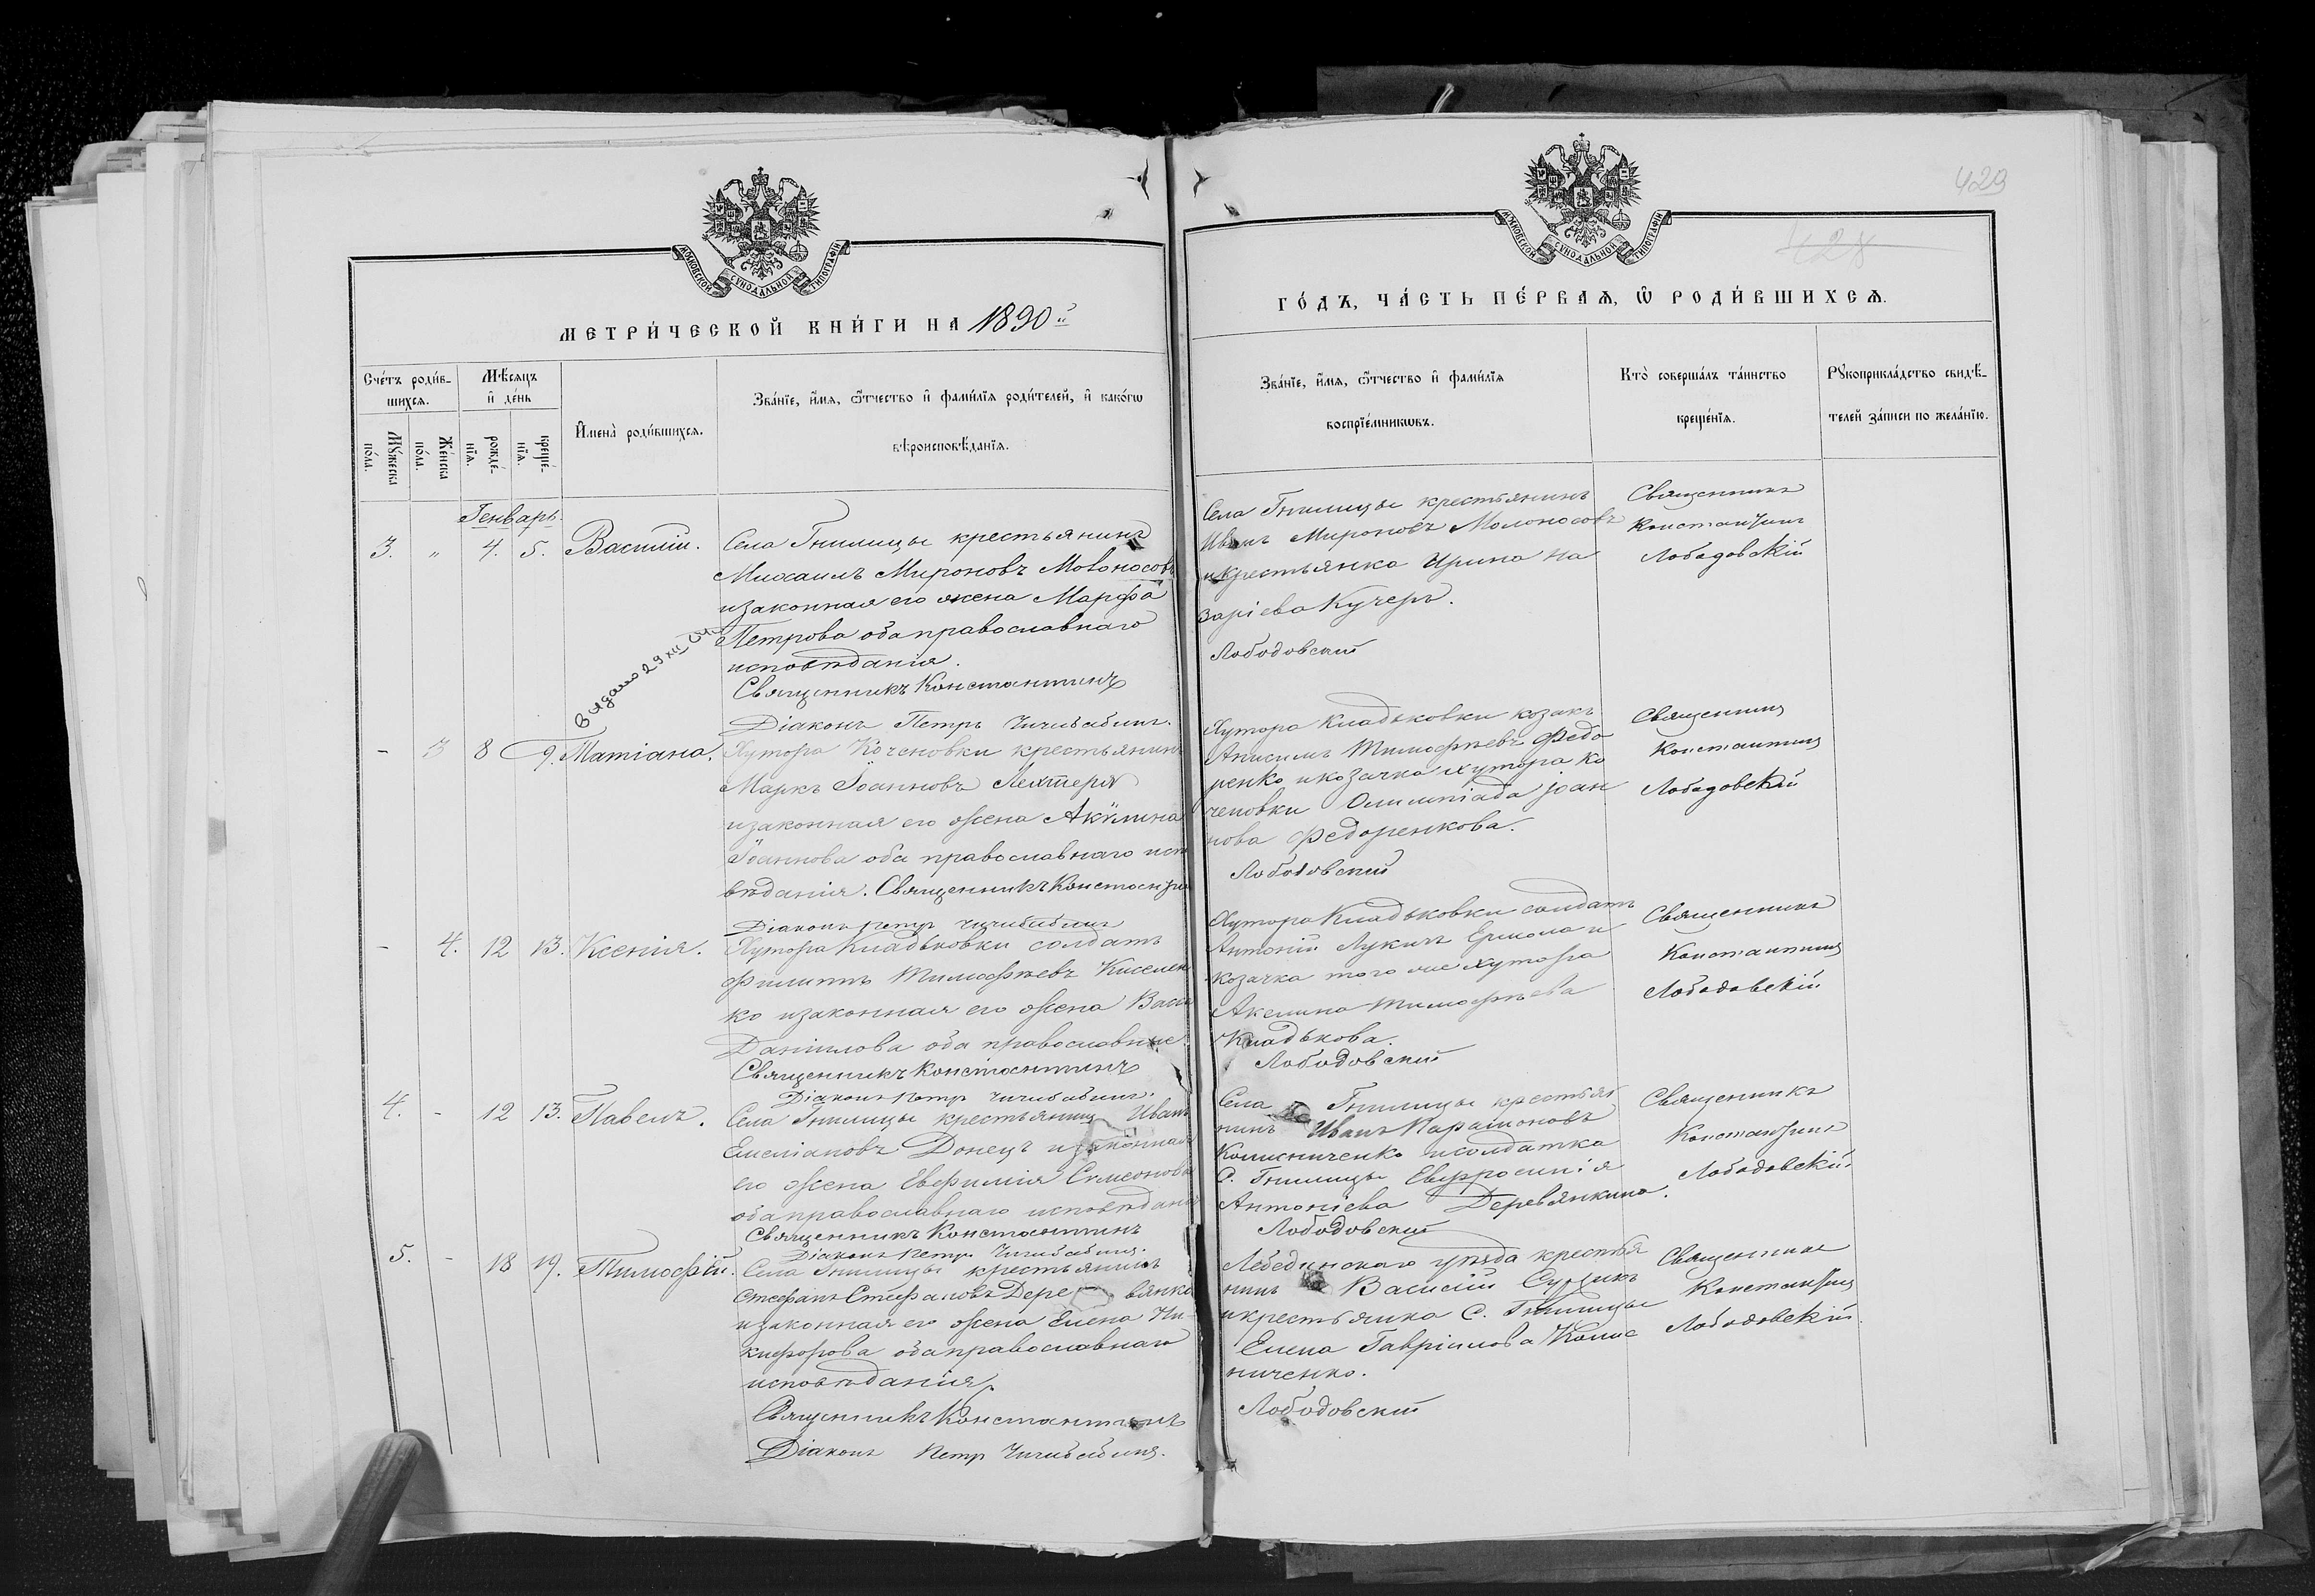 429
428
МОСКОВСКОЙ СѴНОДАЛЬНОЙ ТИПОГРАФІИ
МОСКОВСКОЙ СѴНОДАЛЬНОЙ ТИПОГРАФІИ
МЕТРИ́ЧЕСКОЙ КНИ́ГИ НА 1890й
ГО́ДЪ, ЧА́СТЬ ПЕ́РВАѦ, Ѡ҆ РОДИ́ВШИХСѦ.
Сче́тъ роди́в-
шихсѧ.
Мꙋ́жеска по́ла.
Же́нска по́ла.
Мѣ́сѧцъ
и҆ де́нь
рожде́-
нїѧ.
креще́-
нїѧ.
И҆мена̀ роди́вшихсѧ.
Зва́нїе, и҆́мѧ, ѻ҆́тчество и҆ фами́лїѧ роди́телей, и҆ како́гѡ
вѣроисповѣ́данїѧ.
Зва́нїе, и҆́мѧ, ѻ҆́тчество и҆ фами́лїѧ
воспрїе́мникѡвъ.
Кто̀ соверша́лъ та́инство
креще́нїѧ.
Рꙋкоприкла́дство свидѣ́-
телей за́писи по жела́нїю.
Генварь.
3. „ 4. 5. Василій.
Села Гнилицы крестьянинъ
Михаилъ Мироновъ Мовоносовъ
и законная его жена Марфа
Петрова оба православнаго
исповѣданія.
Священникъ Константинъ
Діаконъ Петръ Чичибабинъ.
Выдано 29 XII
Села Гнилицы крестьянинъ
Иванъ Мироновъ Молоносовъ
и крестьянка Ирина На
заріева Кучеръ.
Лободовскій
Священникъ
Константинъ
Лободовскій
- 3 8 9. Татіана.
Хутора Коченовки крестьянинъ
Маркъ Іоанновъ Лехтеря
и законная его жена Акилина
Іоаннова оба православнаго испо
вѣданія. Священникъ Константинъ
Діаконъ Петръ Чичибабинъ
Хутора Кладьковки козакъ
Анисимъ Тимофѣевъ Федо
ренко и козачка хутора Ко
ченовки Олимпіада Іоан
нова Федоренкова.
Лободовскій
Священникъ
Константинъ
Лободовскій
- 4. 12 13. Ксенія.
Хутора Кладьковки солдатъ
Филиппъ Тимофѣевъ Киселен
ко и законная его жена Васса
Даніилова оба православные.
Священникъ Константинъ
Діаконъ Петръ Чичибабинъ.
Хутора Кладьковки солдатъ
Антоній Лукинъ Ермола и
козачка того же хутора
Акилина Тимофѣева
Кладькова.
Лободовскій
Священникъ
Константинъ
Лободовскій
4. - 12 13. Павелъ.
Села Гнилицы крестьянинъ Иванъ
Емеліановъ Донецъ и законная
его жена Евфимія Симеонова
оба православнаго исповѣданія
Священникъ Константинъ
Діаконъ Петръ Чичибабинъ.
Села Гнилицы крестья
нинъ Иванъ Парамоновъ
Колисниченко и солдатка
С. Гнилицы Евфросинія
Антоніева Деревянкина.
Лободовскій
Священникъ
Константинъ
Лободовскій
5. - 18 19. Тимофій.
Села Гнилицы крестьянинъ
Стефанъ Стефановъ Дере вянко
и законная его жена Елена Ни
кифорова оба православнаго
исповѣданія.
Священникъ Константинъ
Діаконъ Петръ Чичибабинъ.
Лебединскаго уѣзда крестья
нинъ Василій
и крестьянка С. Гнилицы
Елена Гавріилова Колис
ниченко.
Лободовскій
Священникъ
Константинъ
Лободовскій